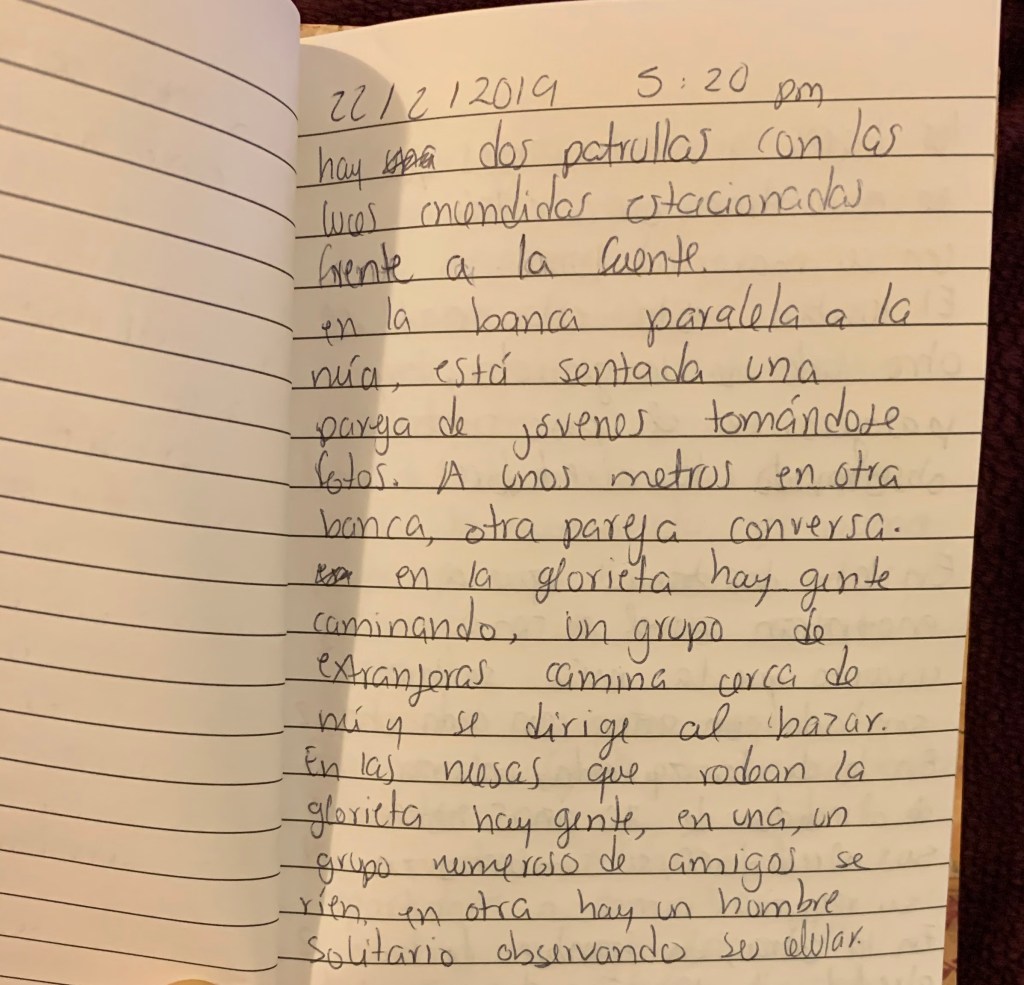 22/2/2019 5:20 pm
hay dos patrullas con las
luces encendidas estacionadas
frente a la fuente.
en la banca paralela a la
mía, está sentada una
pareja de jóvenes tomándose
fotos. A unos metros en otra
banca, otra pareja conversa.
en la glorieta hay gente
caminando, un grupo de
extranjeras camina cerca de
mí y se dirige al bazar.
En las mesas que rodean la
glorieta hay gente, en una, un
grupo numeroso de amigos se
ríen, en otra hay un hombre
solitario observando su celular.